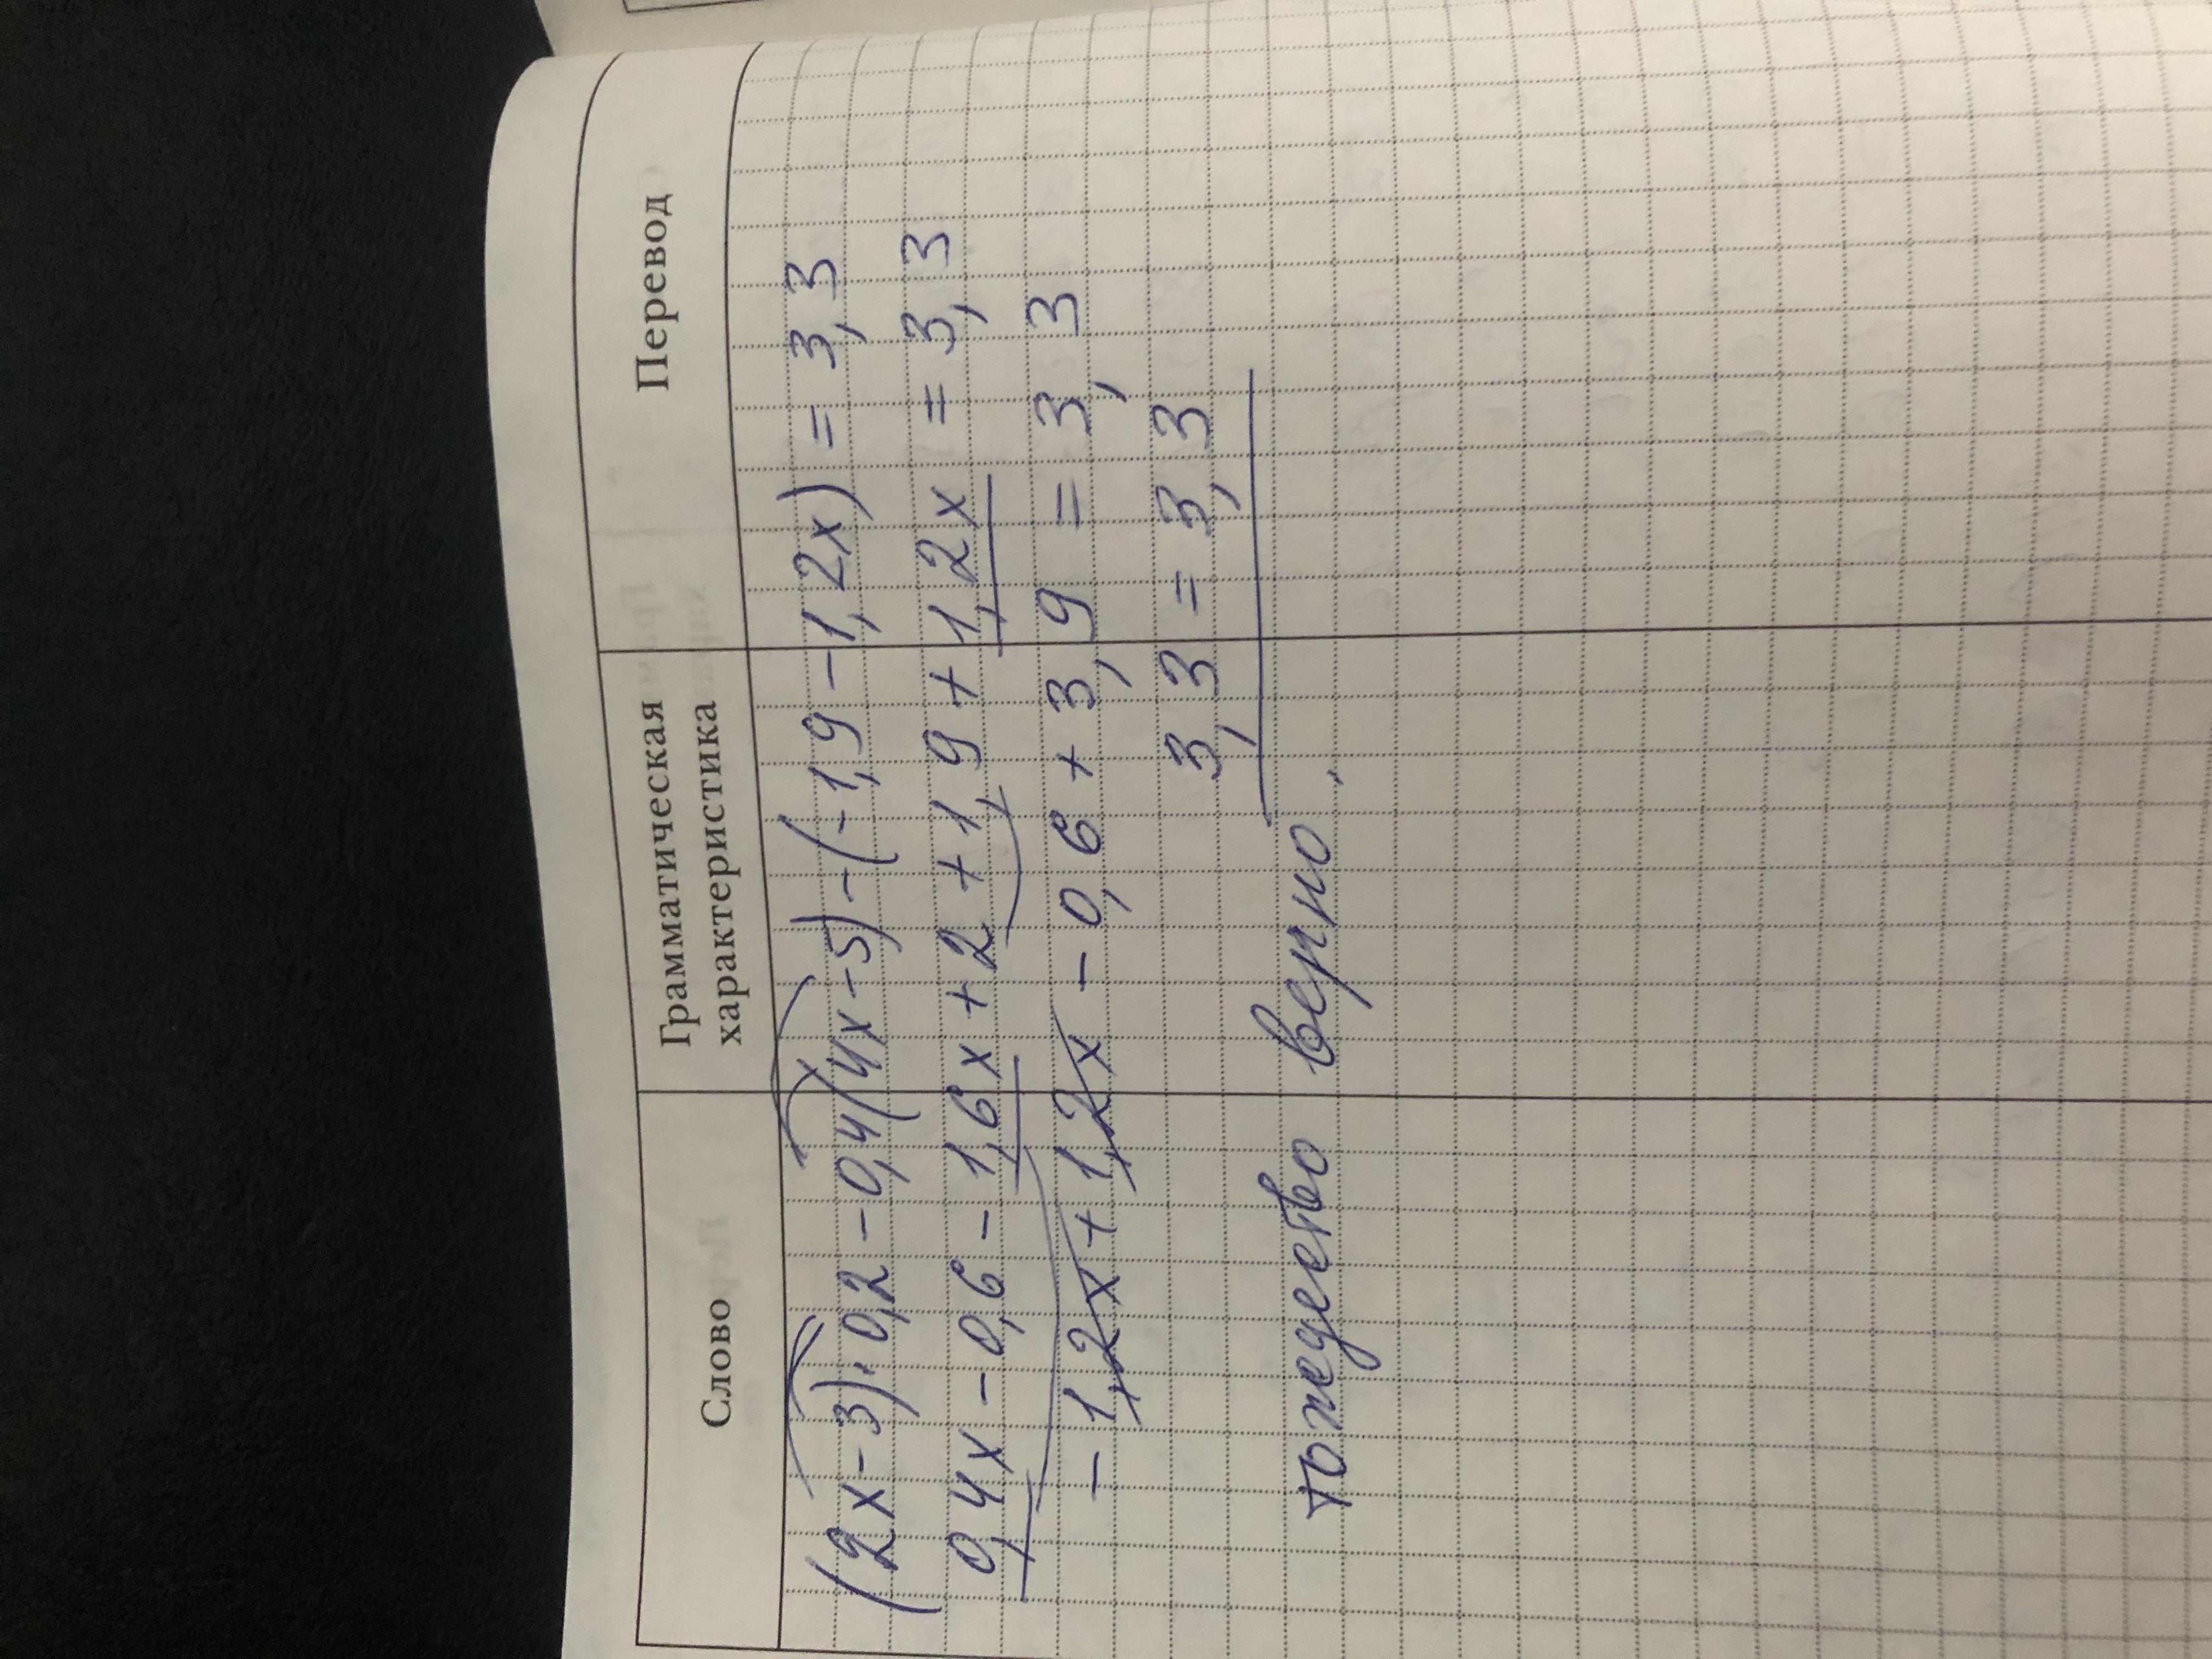 Слово Грамматическая характеристика Перевод
(2x-3)·0,2-0,4(4x-5)-(-1,9-1,2x)=3,3
0,4x-0,6-1,6x+2+1,9+1,2x=3,3
-1,2x+1,2x-0,6+3,9=3,3
3,3=3,3
тождество верно.